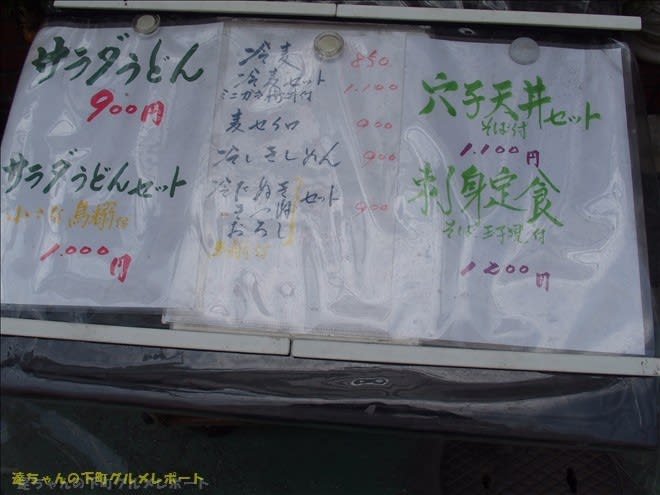 サラダうどん
900円
サラダうどんセット
小さな鳥丼付
1.000円
冷麦
850
冷麦セット
1.100
麦せいろ
900
冷しきしめん
900
冷たぬき
きつね
おろし
セット
900
穴子天丼セット
そば付
1.100円
刺身定食
そば 玉子焼付
1200円
達ちゃんの下町グルメレポート